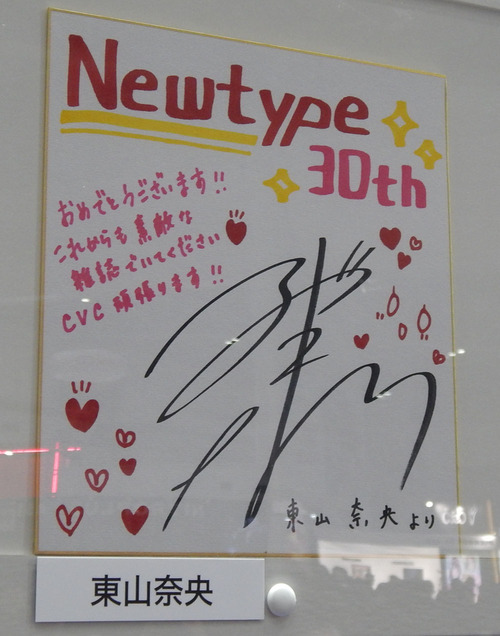 Newtype
30th
おめでとうございます!!
これからも素敵な
雑誌でいてください
CVC 頑張ります!!
東山奈央より
東山奈央